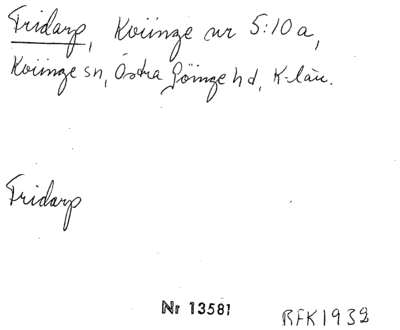 Fridarp, Kviinge nr 5:10 a,
Kviinge sn, Östra Göinge hd, K-län.
Fridarp
Nr 13581
RFK 1932